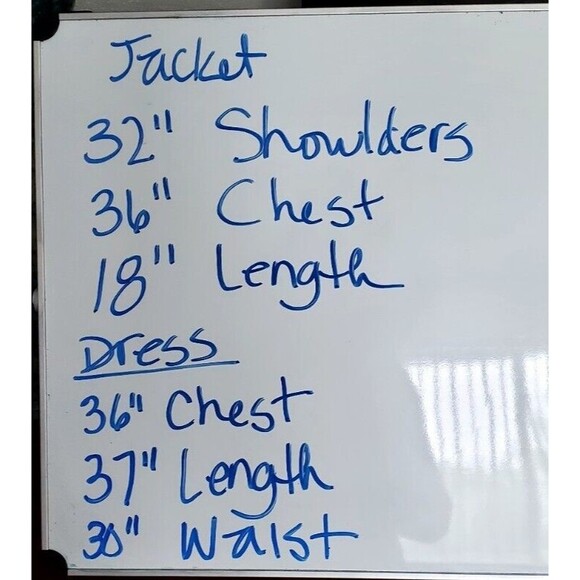 Jacket
32" Shoulders
36" Chest
18" Length
Dress
36" Chest
37" Length
30" Waist